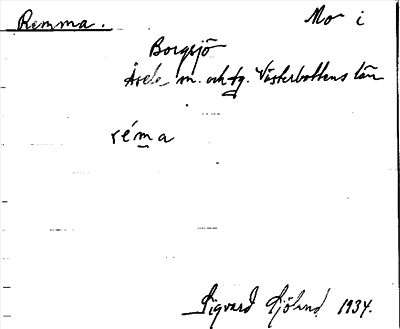 Remma. Mo i
Borgsjö
Åsele sn. och tg. Västerbottens län
réma
Sigvard Sjölund 1934.